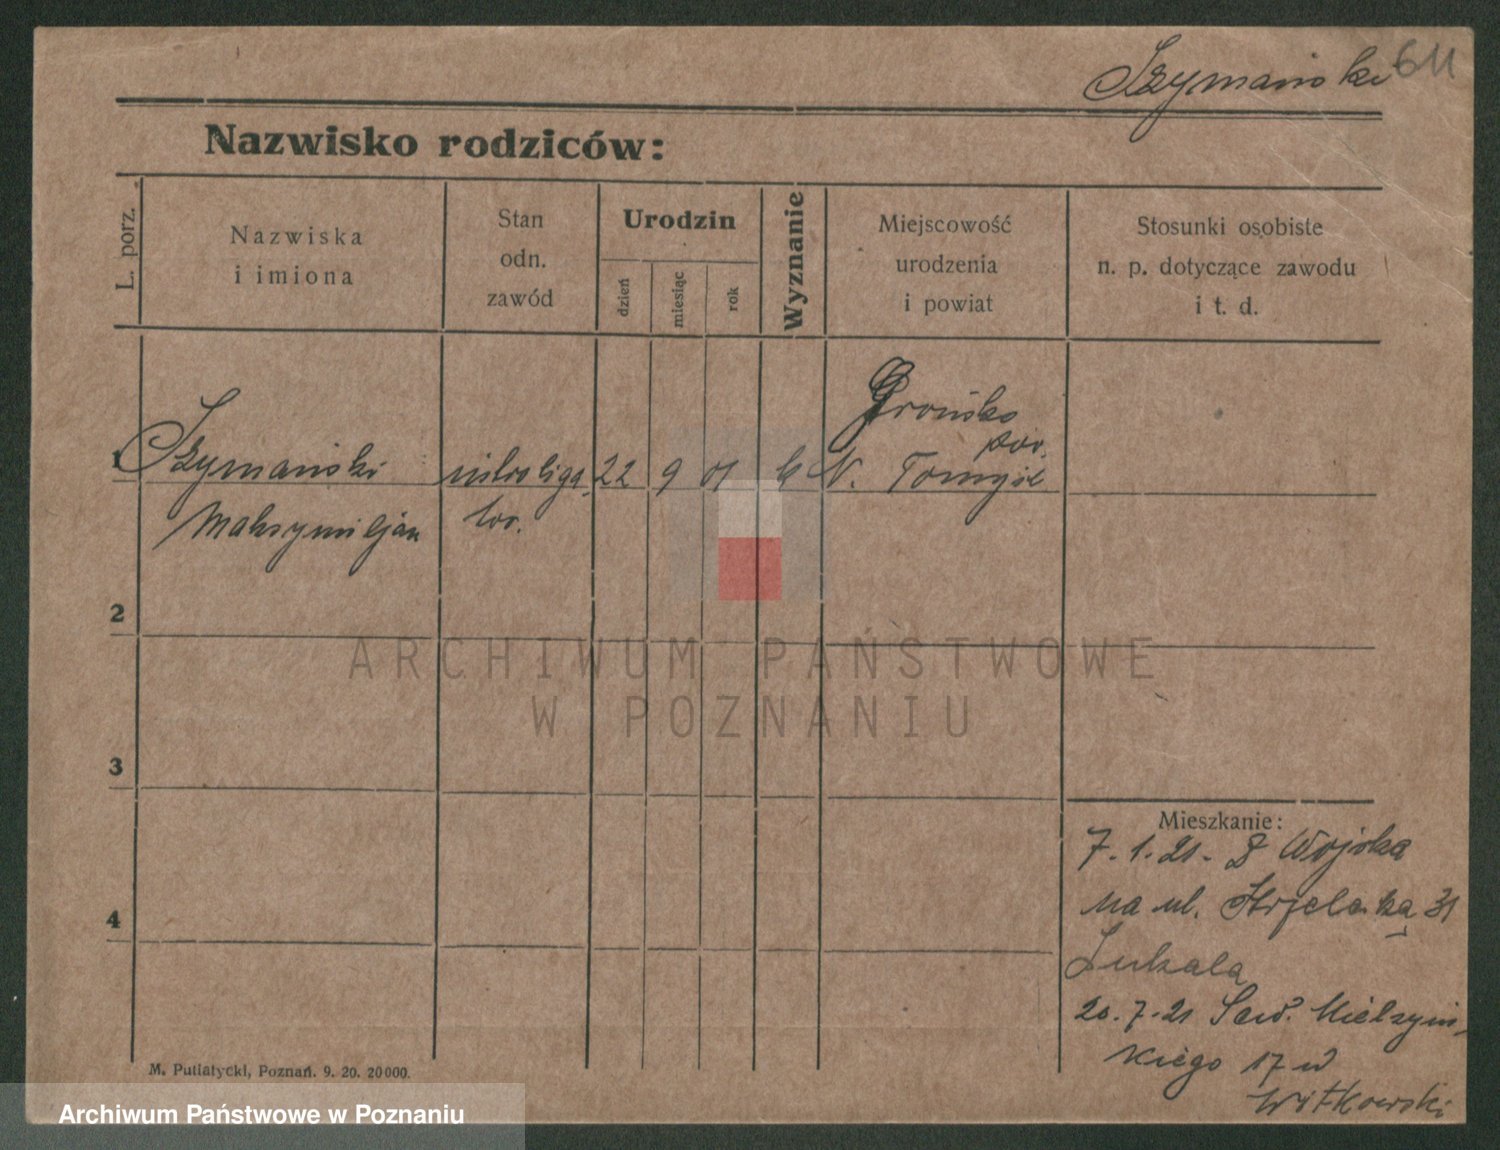 Szymański 611
Nazwisko rodziców:
L. porz.
Nazwiska
i imiona
Stan
odn.
zawód
Urodzin
dzień
miesiąc
rok
Wyznanie
Miejscowość
urodzenia
i powiat
Stosunki osobiste
n. p. dotyczące zawodu
i t. d.
Grońsko
pow.
1 Szymański introliga 22 9 01 k N. Tomyśl
Maksymiljan tor.
2
ARCHIWUM PAŃSTWOWE
W POZNANIU
3
Mieszkanie:
7.1.21. Z Wojska
na ul. Strzelecką 31
4
20.7.21 Sew. Mielżyń-
kiego 17 w
Witkowski
M. Putiatycki, Poznań. 9. 20. 20000.
Archiwum Państwowe w Poznaniu